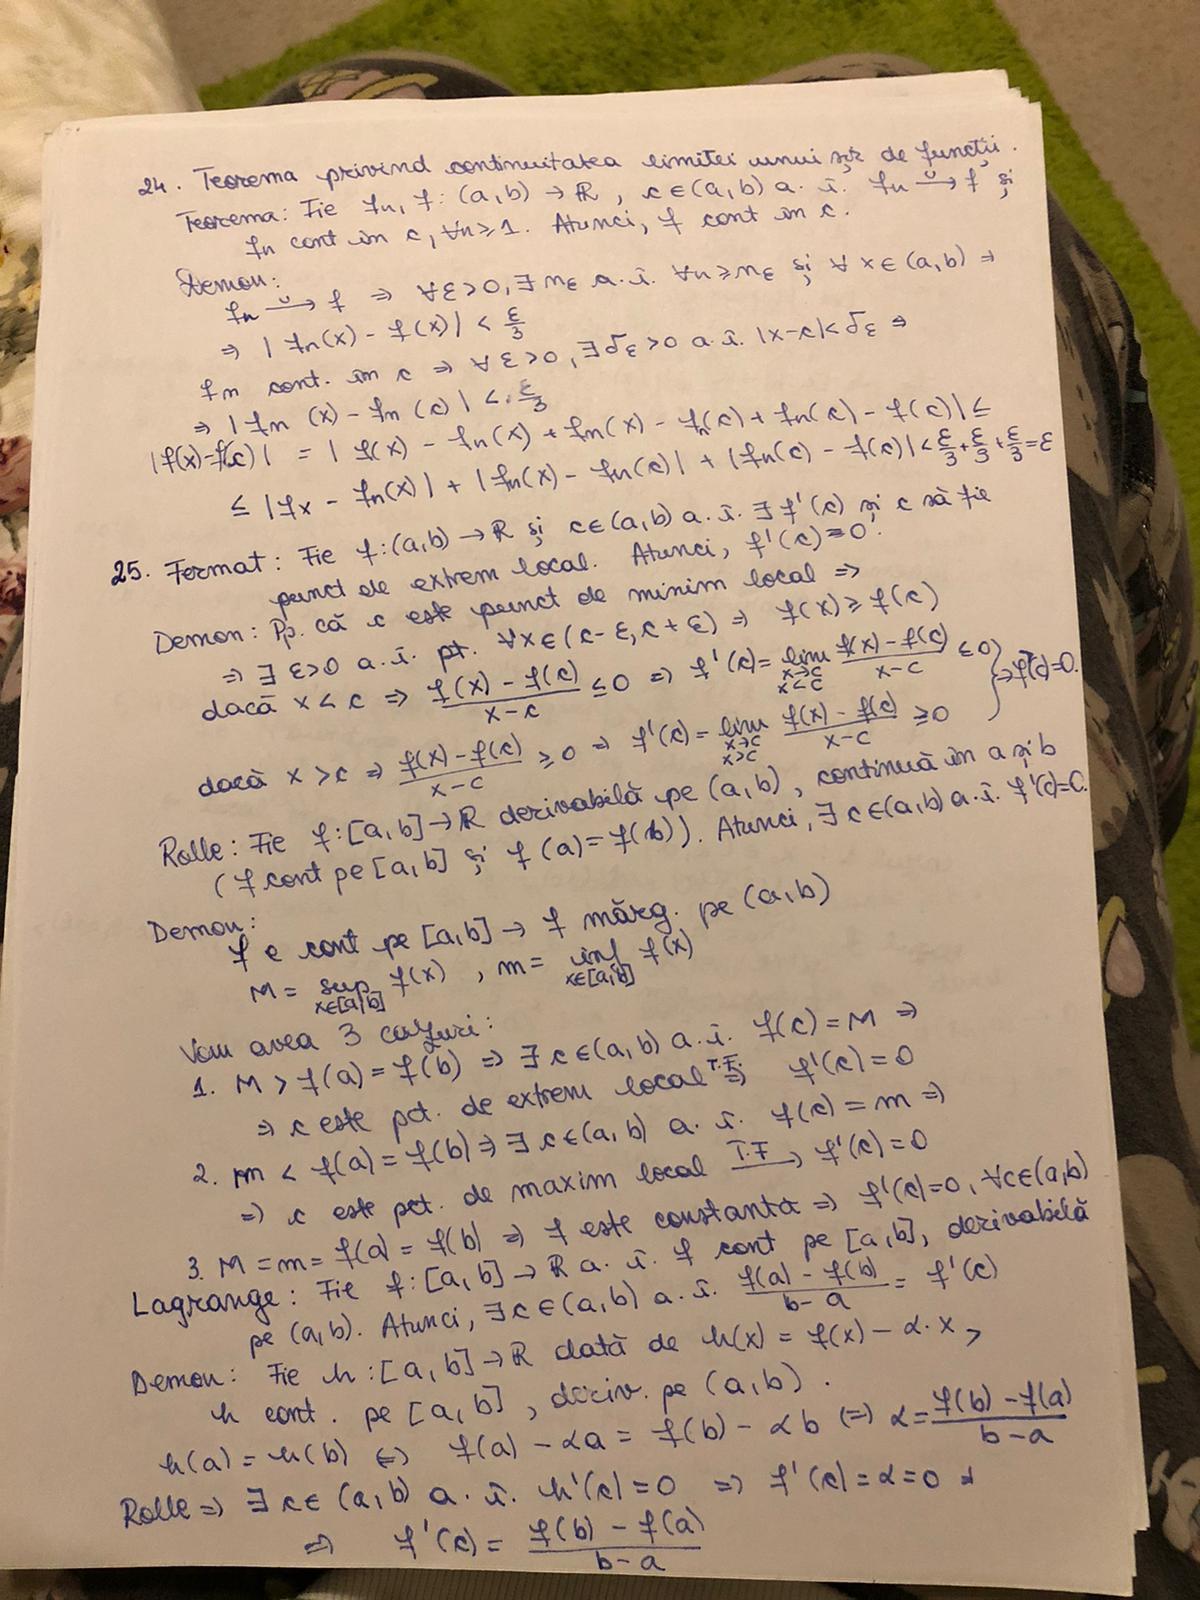 24. Teorema privind continuitatea limitei unui șir de funcții.
Teorema: Fie fn, f: (a,b) → ℝ, c∈(a,b) a. î. fn →ᵘ f și
fn cont în c, ∀n≥1. Atunci, f cont în c.
Demon:
fn →ᵘ f ⇒ ∀ε>0, ∃ nε a.î. ∀n≥nε și ∀ x∈(a,b) ⇒
⇒ |fn(x) - f(x)| < ε/3
fn cont. în c ⇒ ∀ε>0, ∃δε>0 a.î. |x-c|<δε ⇒
⇒ |fn(x) - fn(c)| < ε/3
|f(x)-f(c)| = |f(x) - fn(x) + fn(x) - fn(c) + fn(c) - f(c)| ≤
≤ |fx - fn(x)| + |fn(x) - fn(c)| + |fn(c) - f(c)| < ε/3 + ε/3 + ε/3 = ε
25. Fermat: Fie f:(a,b) → ℝ și c∈(a,b) a.î. ∃ f'(c) și c să fie
punct de extrem local. Atunci, f'(c)=0.
Demon: Pp. că c este punct de minim local ⇒
⇒ ∃ε>0 a.î. pt. ∀x∈(c-ε, c+ε) ⇒ f(x) ≥ f(c)
dacă x<c ⇒ (f(x) - f(c))/(x-c) ≤ 0 ⇒ f'(c) = lim x→c x<c (f(x) - f(c))/(x-c) ≤ 0 } ⇒ f'(c)=0.
dacă x>c ⇒ (f(x) - f(c))/(x-c) ≥ 0 ⇒ f'(c) = lim x→c x>c (f(x) - f(c))/(x-c) ≥ 0
Rolle: Fie f:[a,b] → ℝ derivabilă pe (a,b), continuă în a și b
(f cont pe [a,b] și f(a)=f(b)). Atunci, ∃ c∈(a,b) a.î. f'(c)=0.
Demon:
f e cont pe [a,b] → f mărg. pe (a,b)
M = sup x∈[a,b] f(x), m = inf x∈[a,b] f(x)
Vom avea 3 cazuri:
1. M > f(a) = f(b) ⇒ ∃ c∈(a,b) a.î. f(c) = M ⇒
⇒ c este pct. de extrem local T.F. ⇒ f'(c) = 0
2. m < f(a) = f(b) ⇒ ∃ c∈(a,b) a. î. f(c) = m ⇒
⇒ c este pct. de maxim local T.F → f'(c) = 0
3. M = m = f(a) = f(b) ⇒ f este constanta ⇒ f'(c)=0, ∀c∈(a,b)
Lagrange: Fie f:[a,b] → ℝ a. î. f cont pe [a,b], derivabilă
pe (a,b). Atunci, ∃ c∈(a,b) a. î. (f(a) - f(b))/(b-a) = f'(c)
Demon: Fie h:[a,b] → ℝ dată de h(x) = f(x) - α·x,
h cont. pe [a,b], deriv. pe (a,b).
h(a) = h(b) ⇔ f(a) - αa = f(b) - αb ⇔ α = (f(b) - f(a))/(b-a)
Rolle ⇒ ∃ c∈(a,b) a. î. h'(c) = 0 ⇒ f'(c) = α = 0
⇒ f'(c) = (f(b) - f(a))/(b-a)